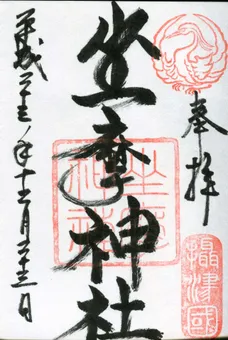 奉拝
攝津國
坐摩神社
坐摩
神社
平成二十三年十二月二十三日